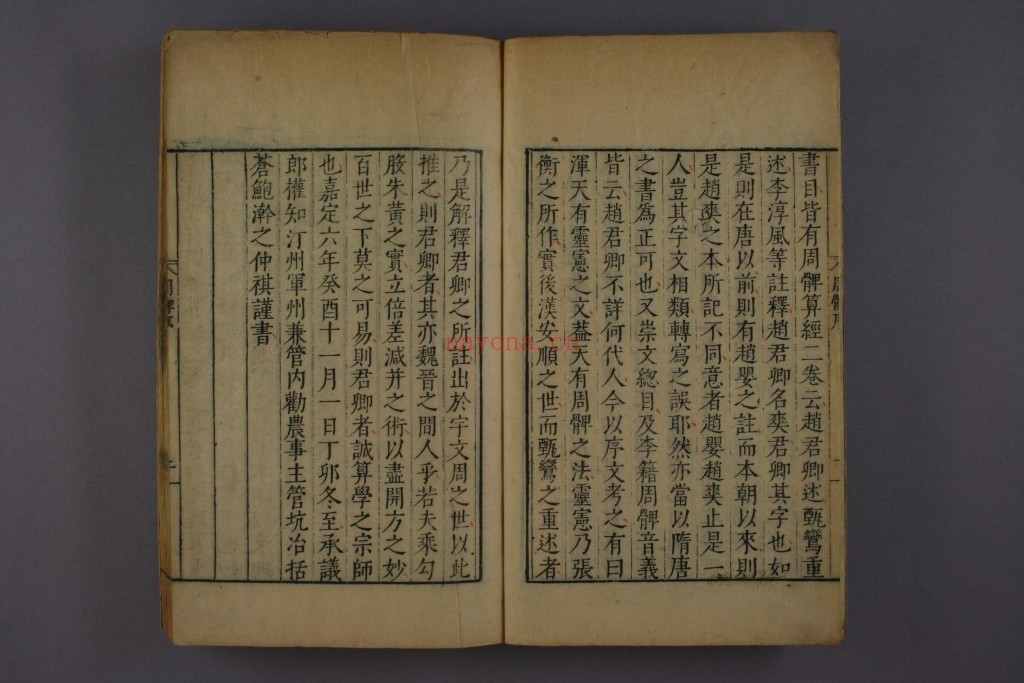 書目皆有周髀算經二卷云趙君卿述甄鸞重
述李淳風等註釋趙君卿名爽君卿其字也如
是則在唐以前則有趙嬰之註而本朝以來則
是趙爽之本所記不同意者趙嬰趙爽止是一
人豈其字文相類轉寫之誤耶然亦當以隋唐
之書爲正可也又崇文總目及李籍周髀音義
皆云趙君卿不詳何代人今以序文考之有曰
渾天有靈憲之文蓋天有周髀之法靈憲乃張
衡之所作實後漢安順之世而甄鸞之重述者
乃是解釋君卿之所註出於宇文周之世以此
推之則君卿者其亦魏晉之間人乎若夫乘勾
股朱黃之實立倍差減并之術以盡開方之妙
百世之下莫之可易則君卿者誠算學之宗師
也嘉定六年癸酉十一月一日丁卯冬至承議
郎權知汀州軍州兼管內勸農事主管坑冶括
蒼鮑澣之仲祺謹書
nayona.cn